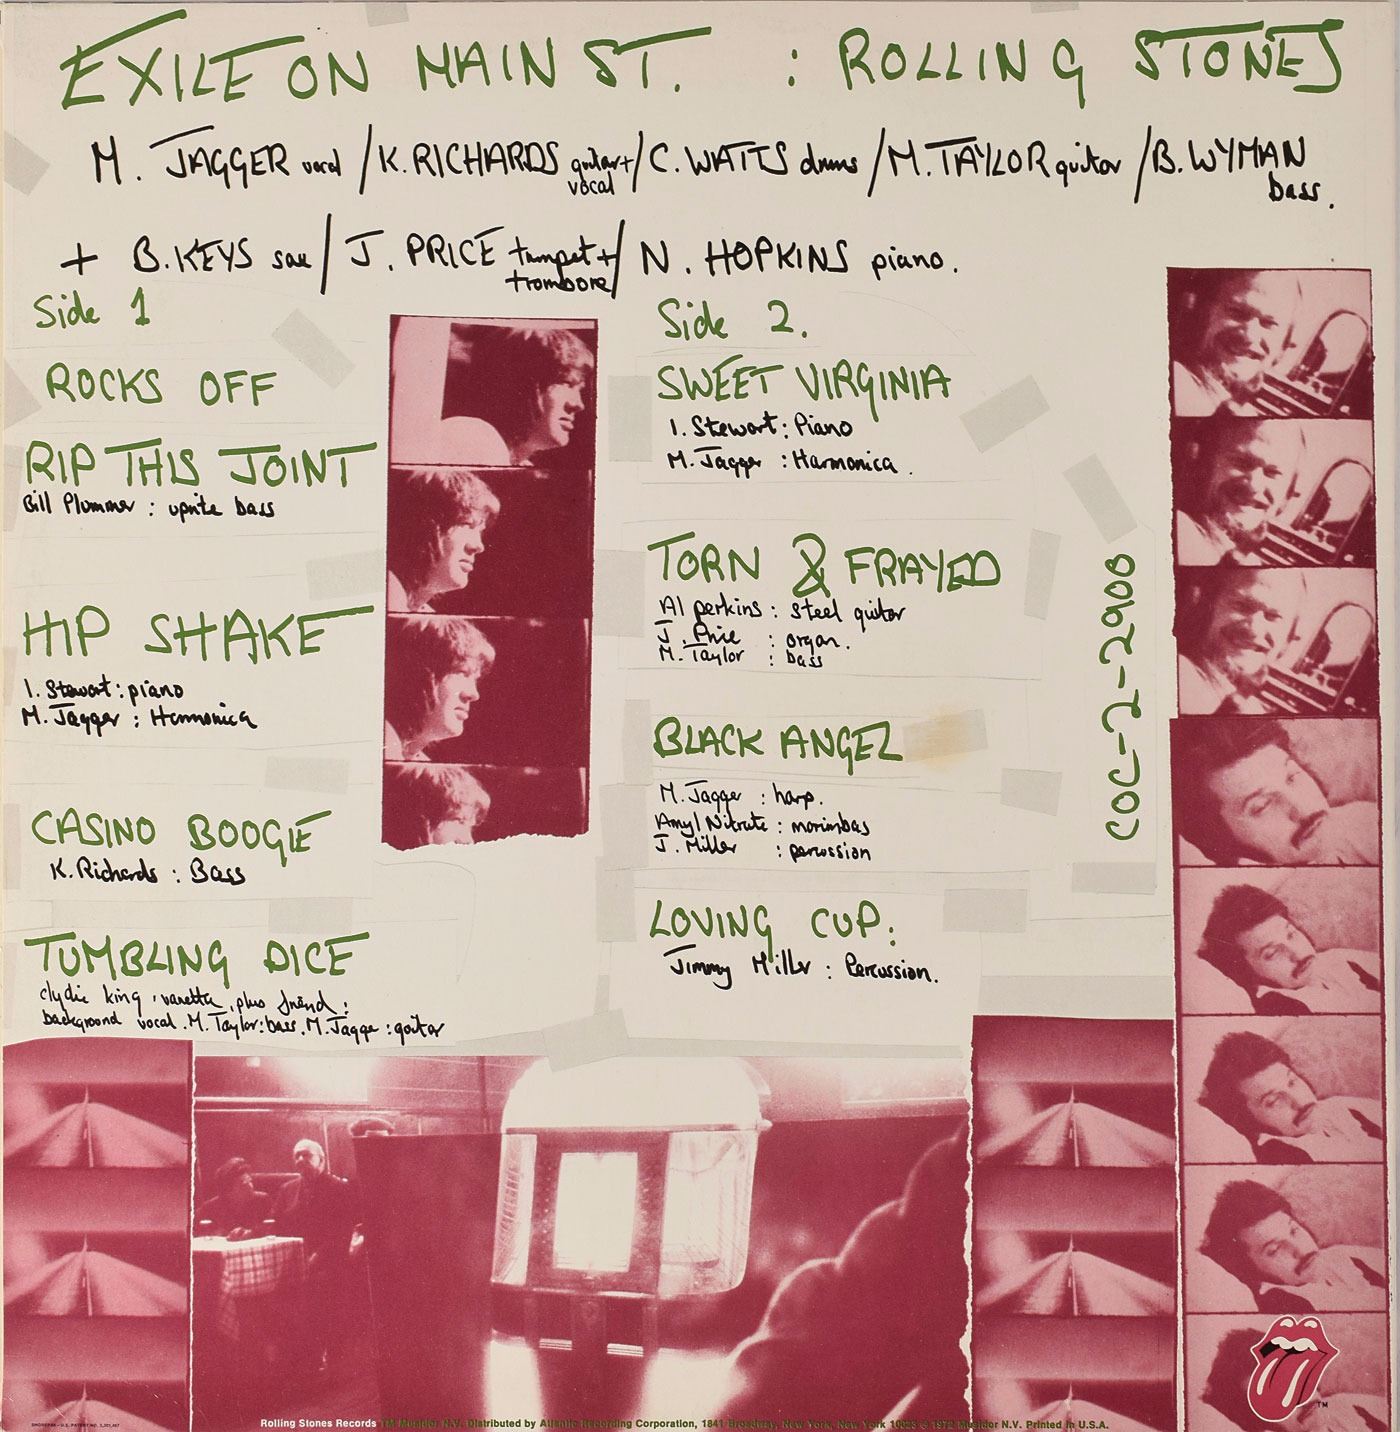 EXILE ON MAIN ST. : ROLLING STONES
M. JAGGER vocal / K. RICHARDS guitar + vocal / C. WATTS drums / M. TAYLOR guitar / B. WYMAN bass.
+ B. KEYS sax / J. PRICE trumpet + trombone / N. HOPKINS piano.
Side 1
ROCKS OFF
RIP THIS JOINT
Bill Plummer : uprite bass
HIP SHAKE
I. Stewart : piano
M. Jagger : Harmonica
CASINO BOOGIE
K. Richards : Bass
TUMBLING DICE
clydie king, vanetta, plus friend :
background vocal. M. Taylor: bass. M. Jagger : guitar
Side 2.
SWEET VIRGINIA
I. Stewart : Piano
M. Jagger : Harmonica.
TORN & FRAYED
Al perkins : steel guitar
J. Price : organ.
M. Taylor : bass
BLACK ANGEL
M. Jagger : harp.
Amyl Nitrate : marimbas
J. Miller : percussion
LOVING CUP :
Jimmy Miller : Percussion.
COC-2-2900
SHOREPAK - U.S. PATENT NO. 3,301,467
Rolling Stones Records TM Musidor N.V. Distributed by Atlantic Recording Corporation, 1841 Broadway, New York, New York 10023 © 1972 Musidor N.V. Printed in U.S.A.
TM